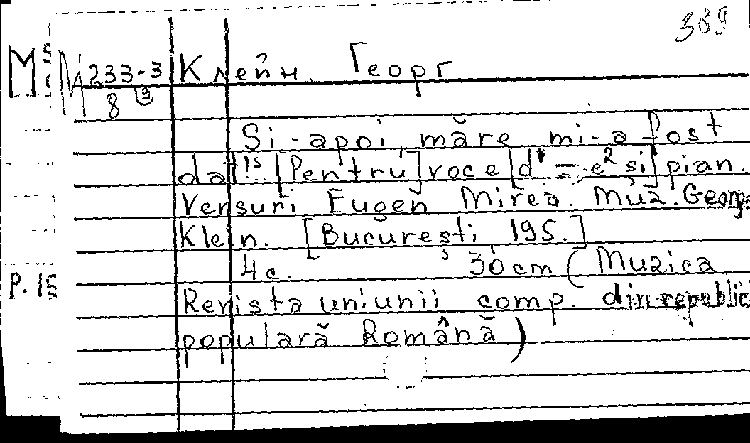 389
М 233-3 Клейн, Георг
8 ③
Si-apoi, măre, mi-a fost
dat! [Pentru] voce [d¹ = e² si] pian.
Versuri Eugen Mirea. Muz. George
Klein. [București, 195.]
4c. 30cm (Muzica
P. 15
Revista uniunii comp. din republici
populară Română)